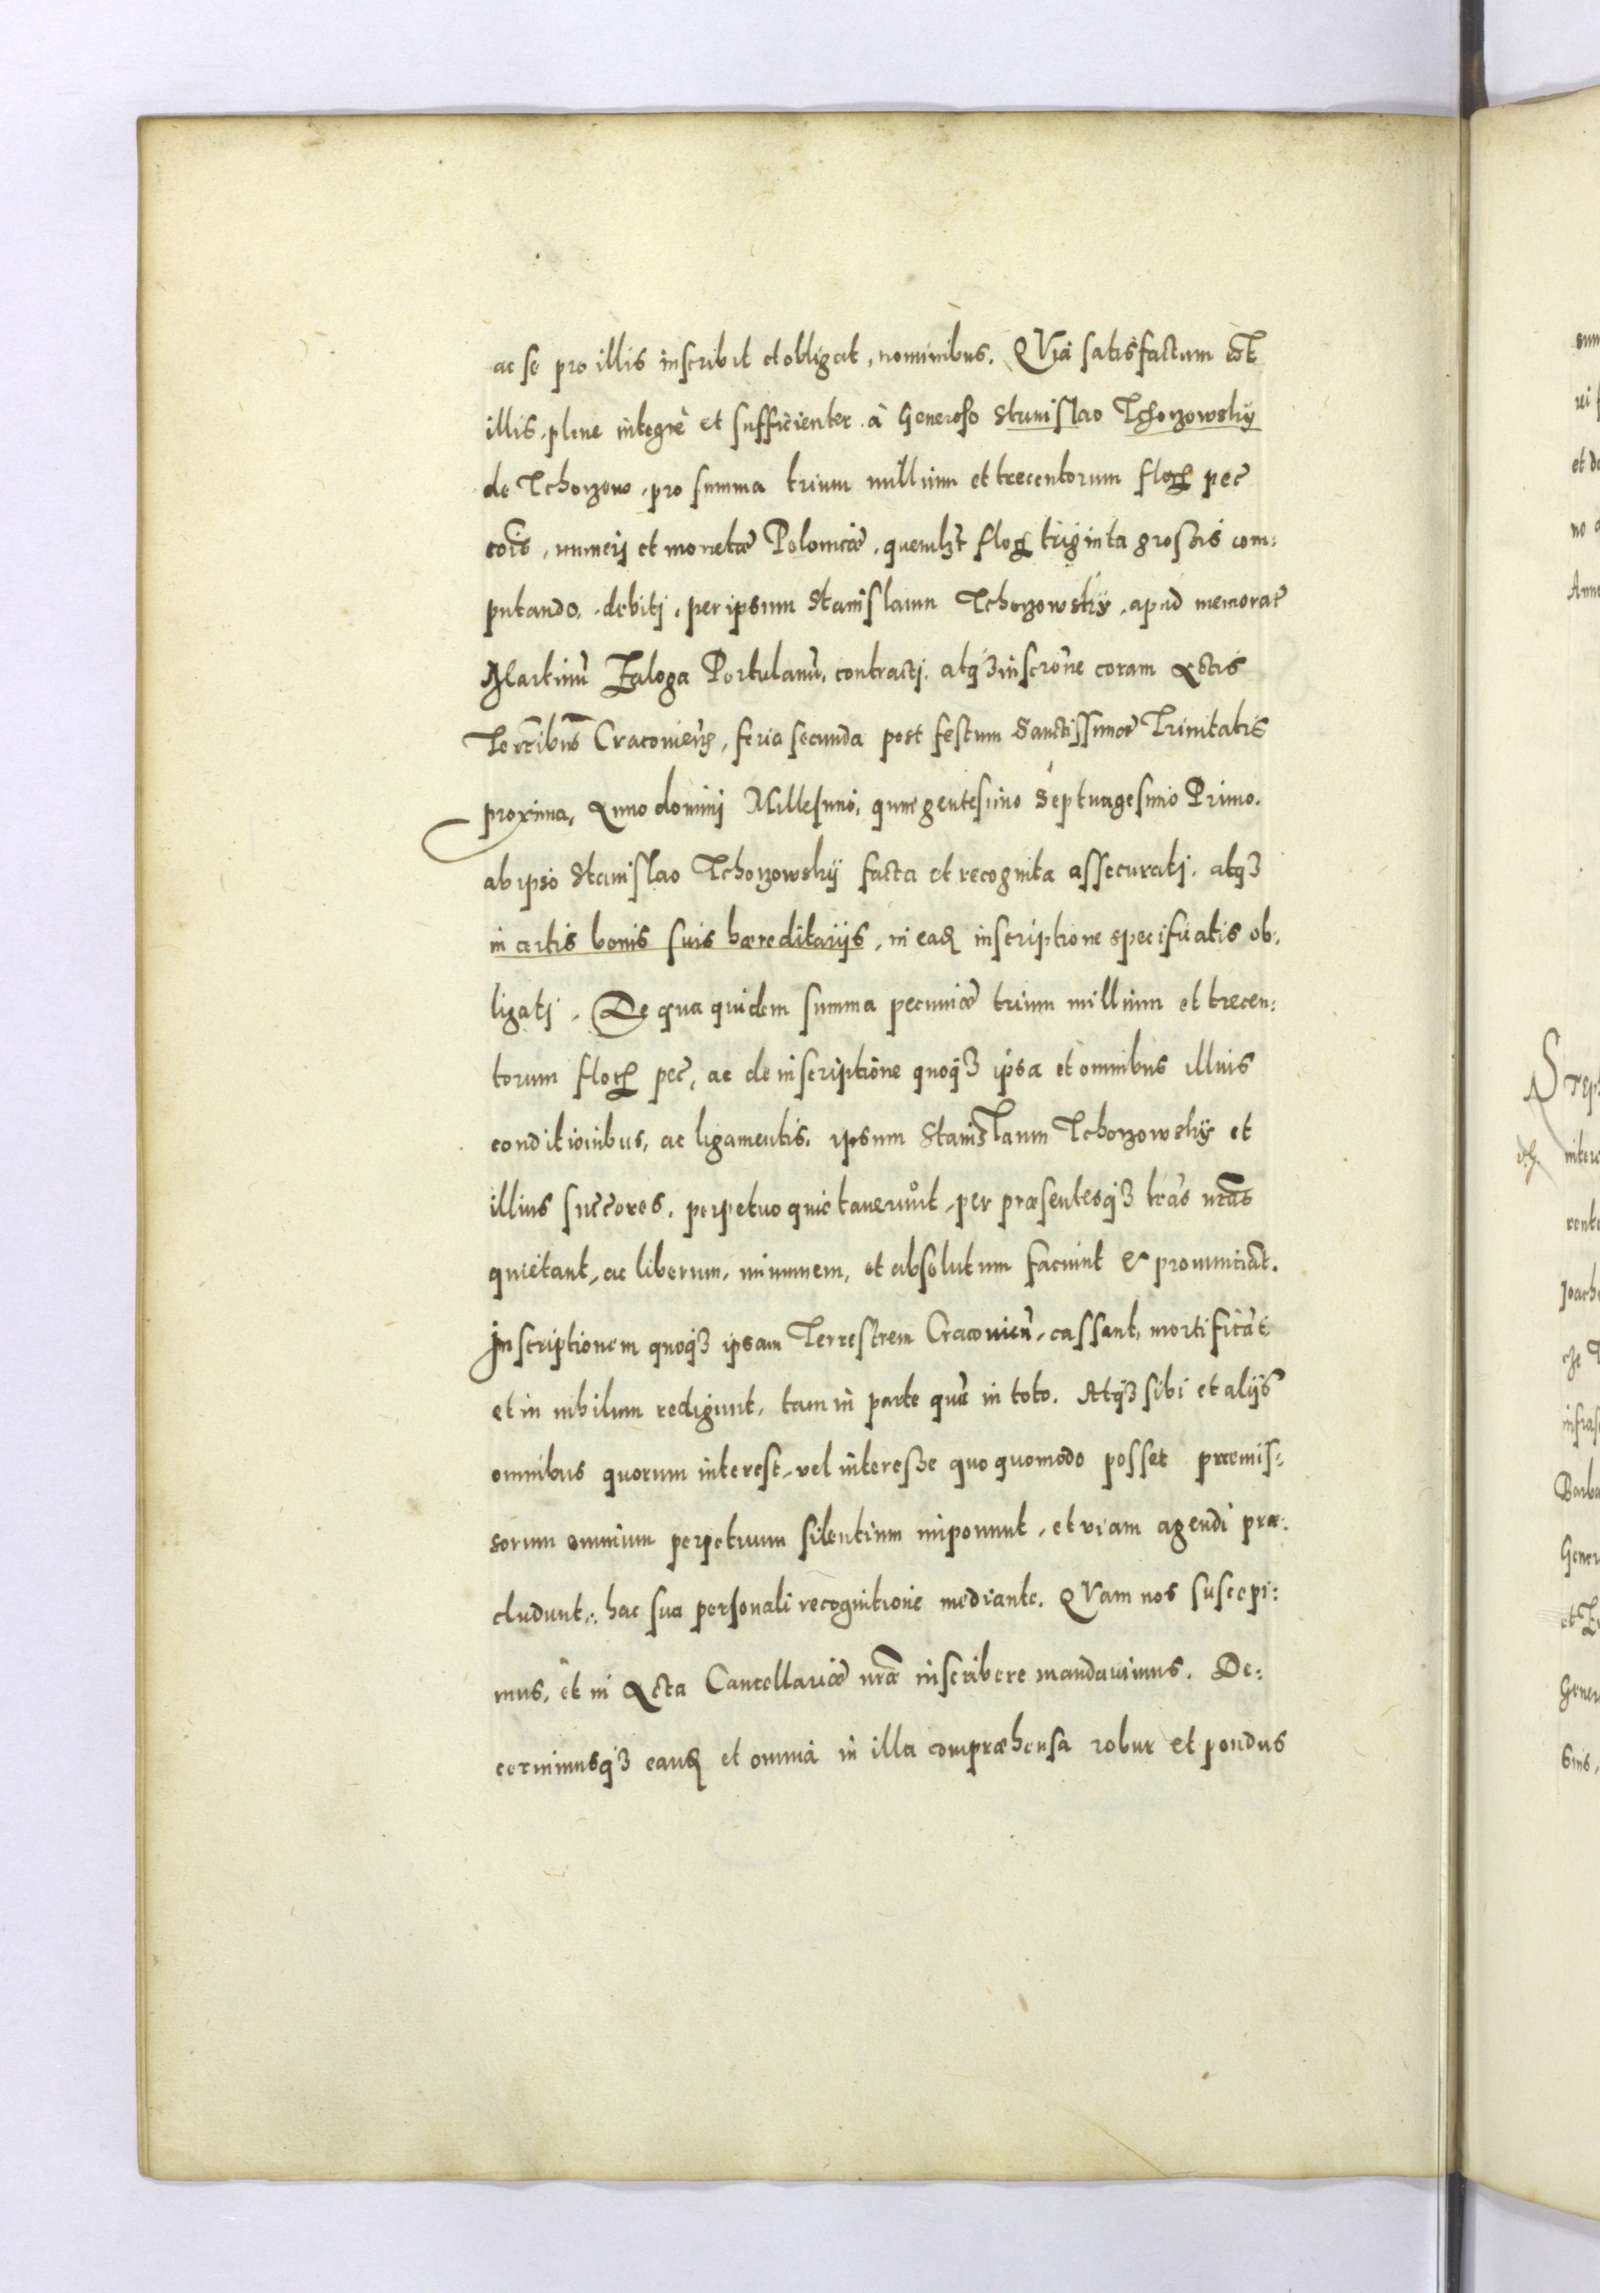 ac se pro illis inscribit et obligat, nominibus. QVia satisfactum est
illis, plene integrè et sufficienter à Generoso Stanislao Tchorzowsky
de Tchorzow, pro summa trium millium et trecentorum flor pec
cois, numeri et monetæ Polonicæ, quemlzt flor triginta grossis com:
putando, debiti, per ipsum Stanislaum Tchorzowsky, apud memorat
Martinũ Zaloga Portulanũ, contracti, atqꝫ inscrone coram Actis
Terribus Cracovien, feria secunda post festum Sanctissimæ Trinitatis
proxima, Anno domini Millesimo, quingentesimo Septuagesimo Primo.
ab ipso Stanislao Tchorzowsky facta et recognita assecurati, atqꝫ
in certis bonis suis hæreditariis, in ead inscriptione specificatis ob:
ligati. De qua quidem summa pecuniæ trium millium et trecen:
torum flor pec, ac de inscriptione quoqꝫ ipsa et omnibus illius
conditionibus, ac ligamentis, ipsum Stanislaum Tchorzowsky et
illius succores, perpetuo quietaverunt, per præsentesqꝫ lras nras
quietant, ac liberum, immunem, et absolutum faciunt & pronunciãt.
Inscriptionem quoqꝫ ipsam Terrestrem Cracovien, cassant, mortificãt
et in nihilum redigunt, tam in parte quã in toto. Atqꝫ sibi et aliis
omnibus quorum interest, vel interesse quoquomodo posset præmis:
sorum omnium perpetuum silentium imponunt, et viam agendi præ:
cludunt, hac sua personali recognitione mediante. QVam nos suscepi:
mus, et in Acta Cancellariæ nræ inscribere mandavimus. De:
cernimusqꝫ eand et omnia in illa compræhensa robur et pondus